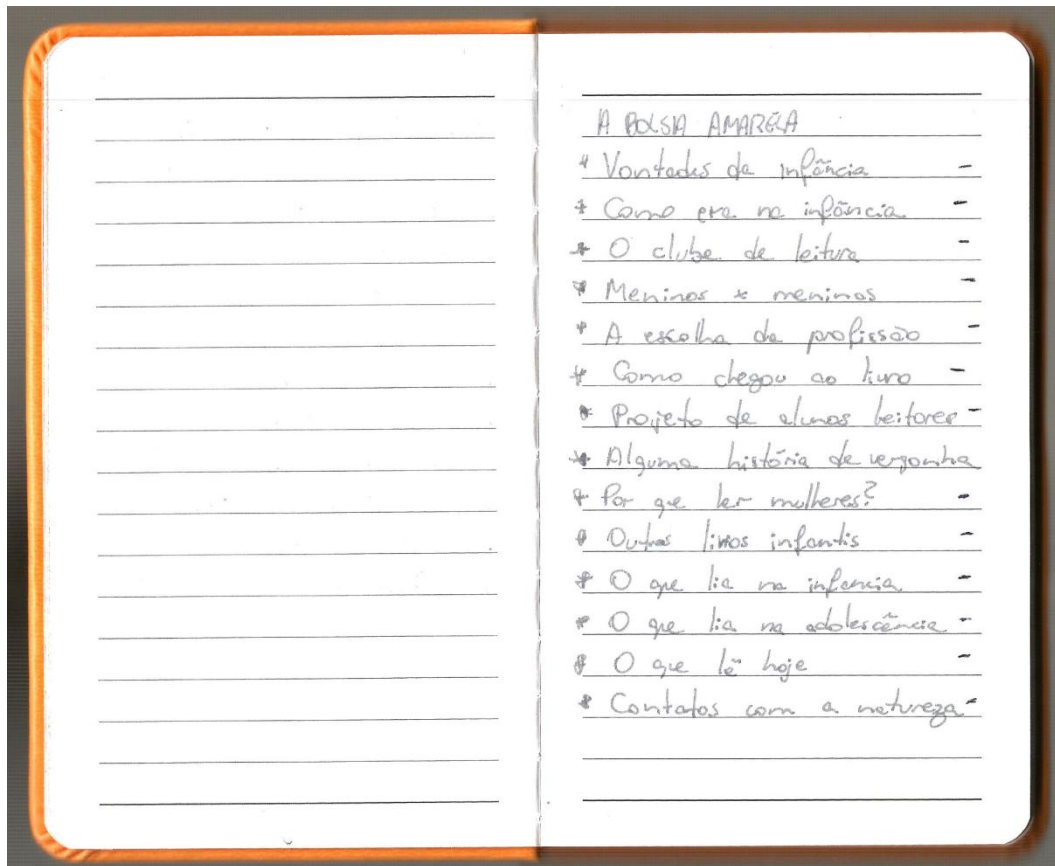 A BOLSA AMARELA
* Vontades da infância -
* Como era na infância -
* O clube de leitura -
* Meninos x meninas -
* A escolha da profissão -
* Como chegou ao livro -
* Projeto de alunos leitores -
* Alguma história de vergonha
* Por que ler mulheres? -
* Outros livros infantis -
* O que lia na infancia -
* O que lia na adolescência -
* O que lê hoje -
* Contatos com a natureza -